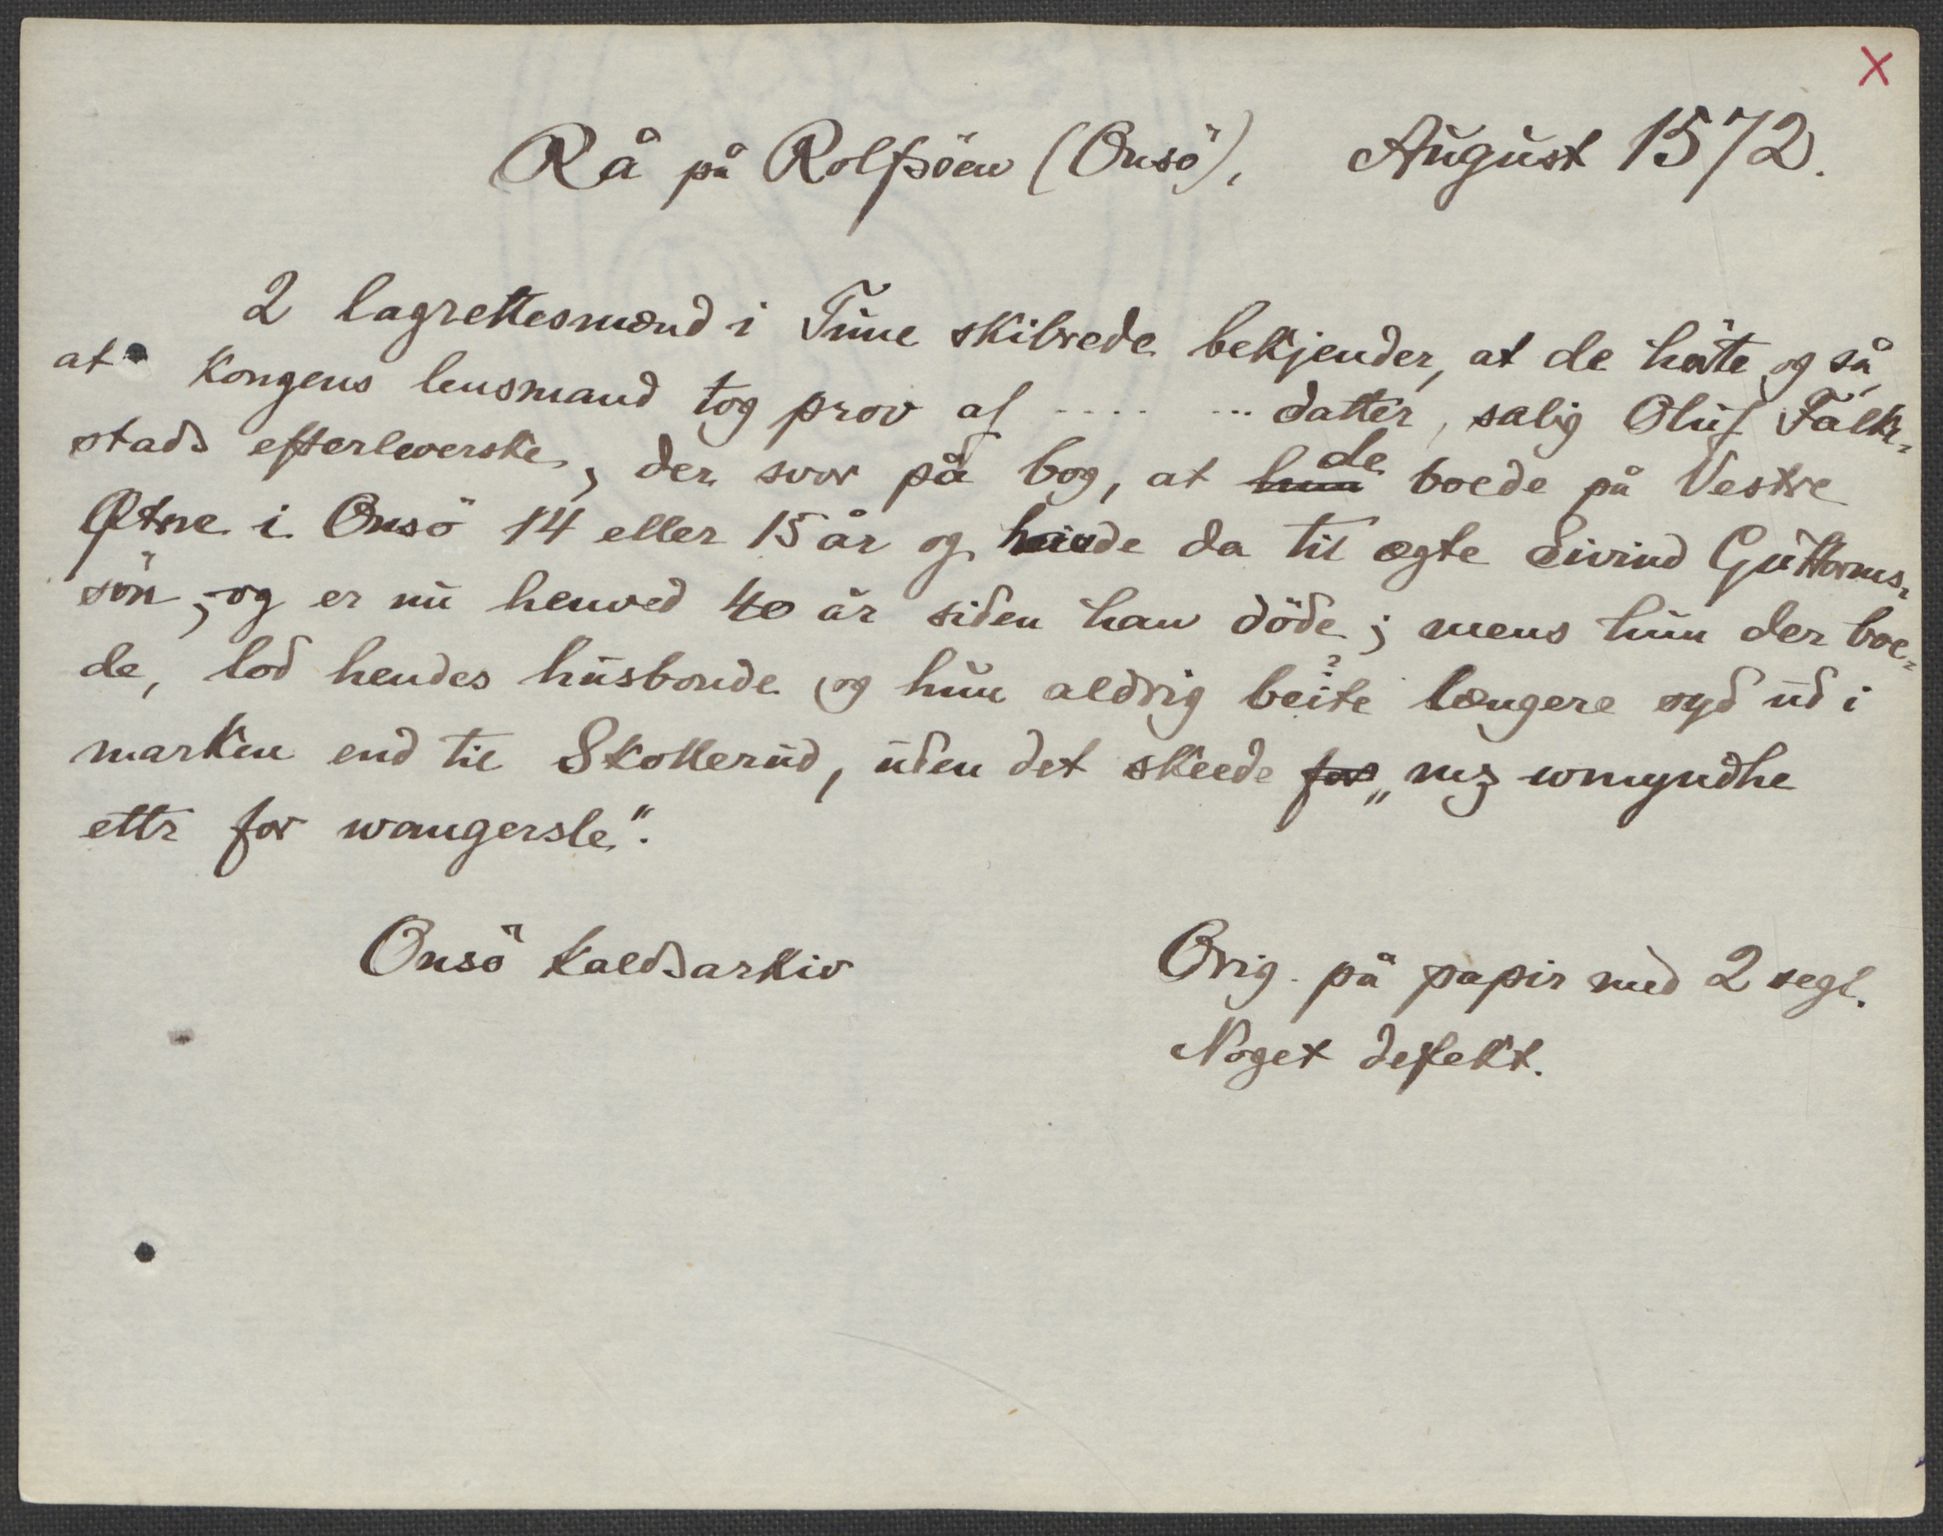 X
Rå på Rolfsöen (Onsö), August 1572.
2 lagrettesmænd i Tune skibrede bekjender, at de hörte og så,
at kongens lensmand tog prov af .... ... datter, salig Oluf Falk-
stads efterleverske, der svor på bog, at hun de boede på Vestre
Ætne i Onsö 14 eller 15 år og havde da til ægte Eivind Guttorms-
sön, og er nu henved 40 år siden han döde; mens hun der boe-
de, lod hendes husbonde og hun aldrig beite ? længere syd ud i
marken end til Skollerud, uden det skeede for „mz wmyndhe
ettr for wangersle“.
Onsö kaldsarkiv
Orig. på papir med 2 segl.
Noget defekt.